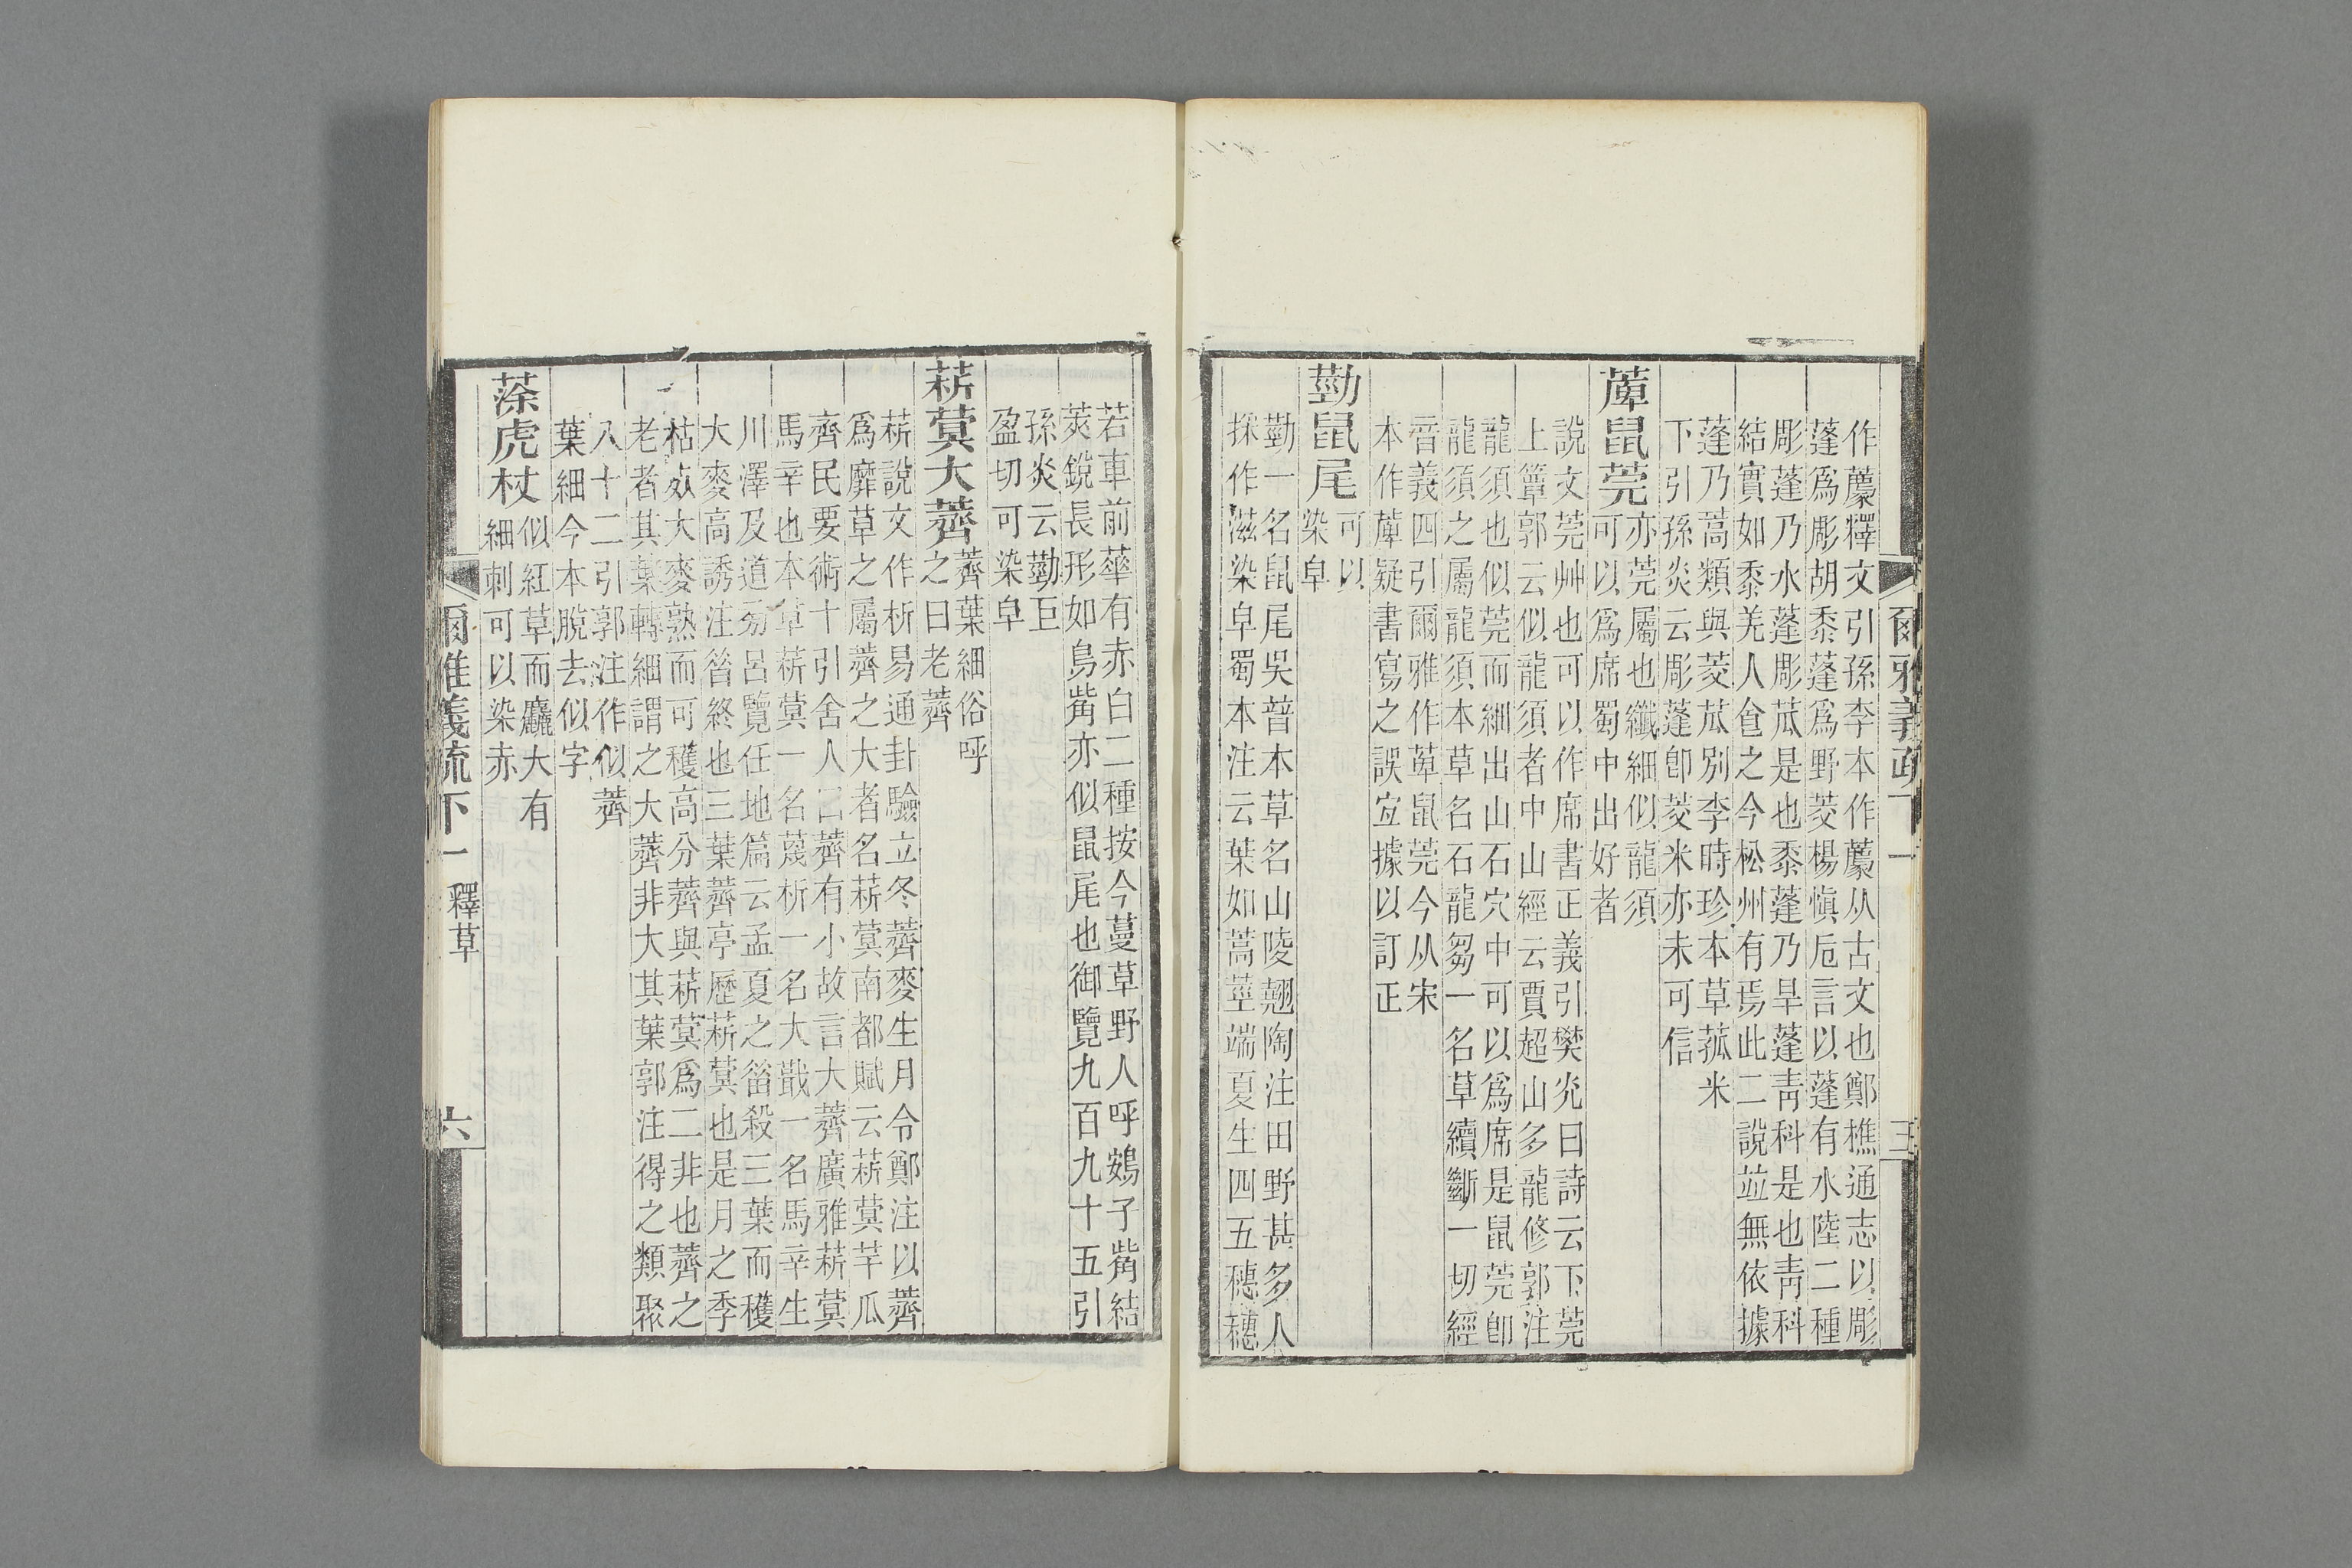 爾雅義疏下一
作藨釋文引孫李本作藨从古文也鄭樵通志以彫
蓬爲彫胡黍蓬爲野茭楊愼卮言以蓬有水陸二種
彫蓬乃水蓬彫苽是也黍蓬乃旱蓬靑科是也靑科
結實如黍羌人食之今松州有焉此二說竝無依據
蓬乃蒿類與茭苽別李時珍本草菰米
下引孫炎云彫蓬卽茭米亦未可信
藨鼠莞
亦莞屬也纖細似龍須
可以爲席蜀中出好者
說文莞艸也可以作席書正義引樊光曰詩云下莞
上簟郭云似龍須者中山經云賈超山多龍修郭注
龍須也似莞而細出山石穴中可以爲席是鼠莞卽
龍須之屬龍須本草名石龍芻一名草續斷一切經
音義四引爾雅作萆鼠莞今从宋
本作藨疑書寫之誤宜據以訂正
葝鼠尾
可以
染皁
葝一名鼠尾吳普本草名山陵翹陶注田野甚多人
採作滋染皁蜀本注云葉如蒿莖端夏生四五穗穗
若車前華有赤白二種按今蔓草野人呼鵶子觜結
莢銳長形如鳥觜亦似鼠尾也御覽九百九十五引
孫炎云葝巨
盈切可染皁
菥蓂大薺
薺葉細俗呼
之曰老薺
菥說文作析易通卦驗立冬薺麥生月令鄭注以薺
爲靡草之屬薺之大者名菥蓂南都賦云菥蓂芋瓜
齊民要術十引舍人曰薺有小故言大薺廣雅菥蓂
馬辛也本草菥蓂一名蔑析一名大蕺一名馬辛生
川澤及道旁呂覽任地篇云孟夏之昔殺三葉而穫
大麥高誘注昝終也三葉薺亭歷菥蓂也是月之季
枯死大麥熟而可穫高分薺與菥蓂爲二非也薺之
老者其葉轉細謂之大薺非大其葉郭注得之類聚
八十二引郭注作似薺
葉細今本脫去似字
蒤虎杖
似紅草而麤大有
細刺可以染赤
爾雅義疏下一
釋草
六